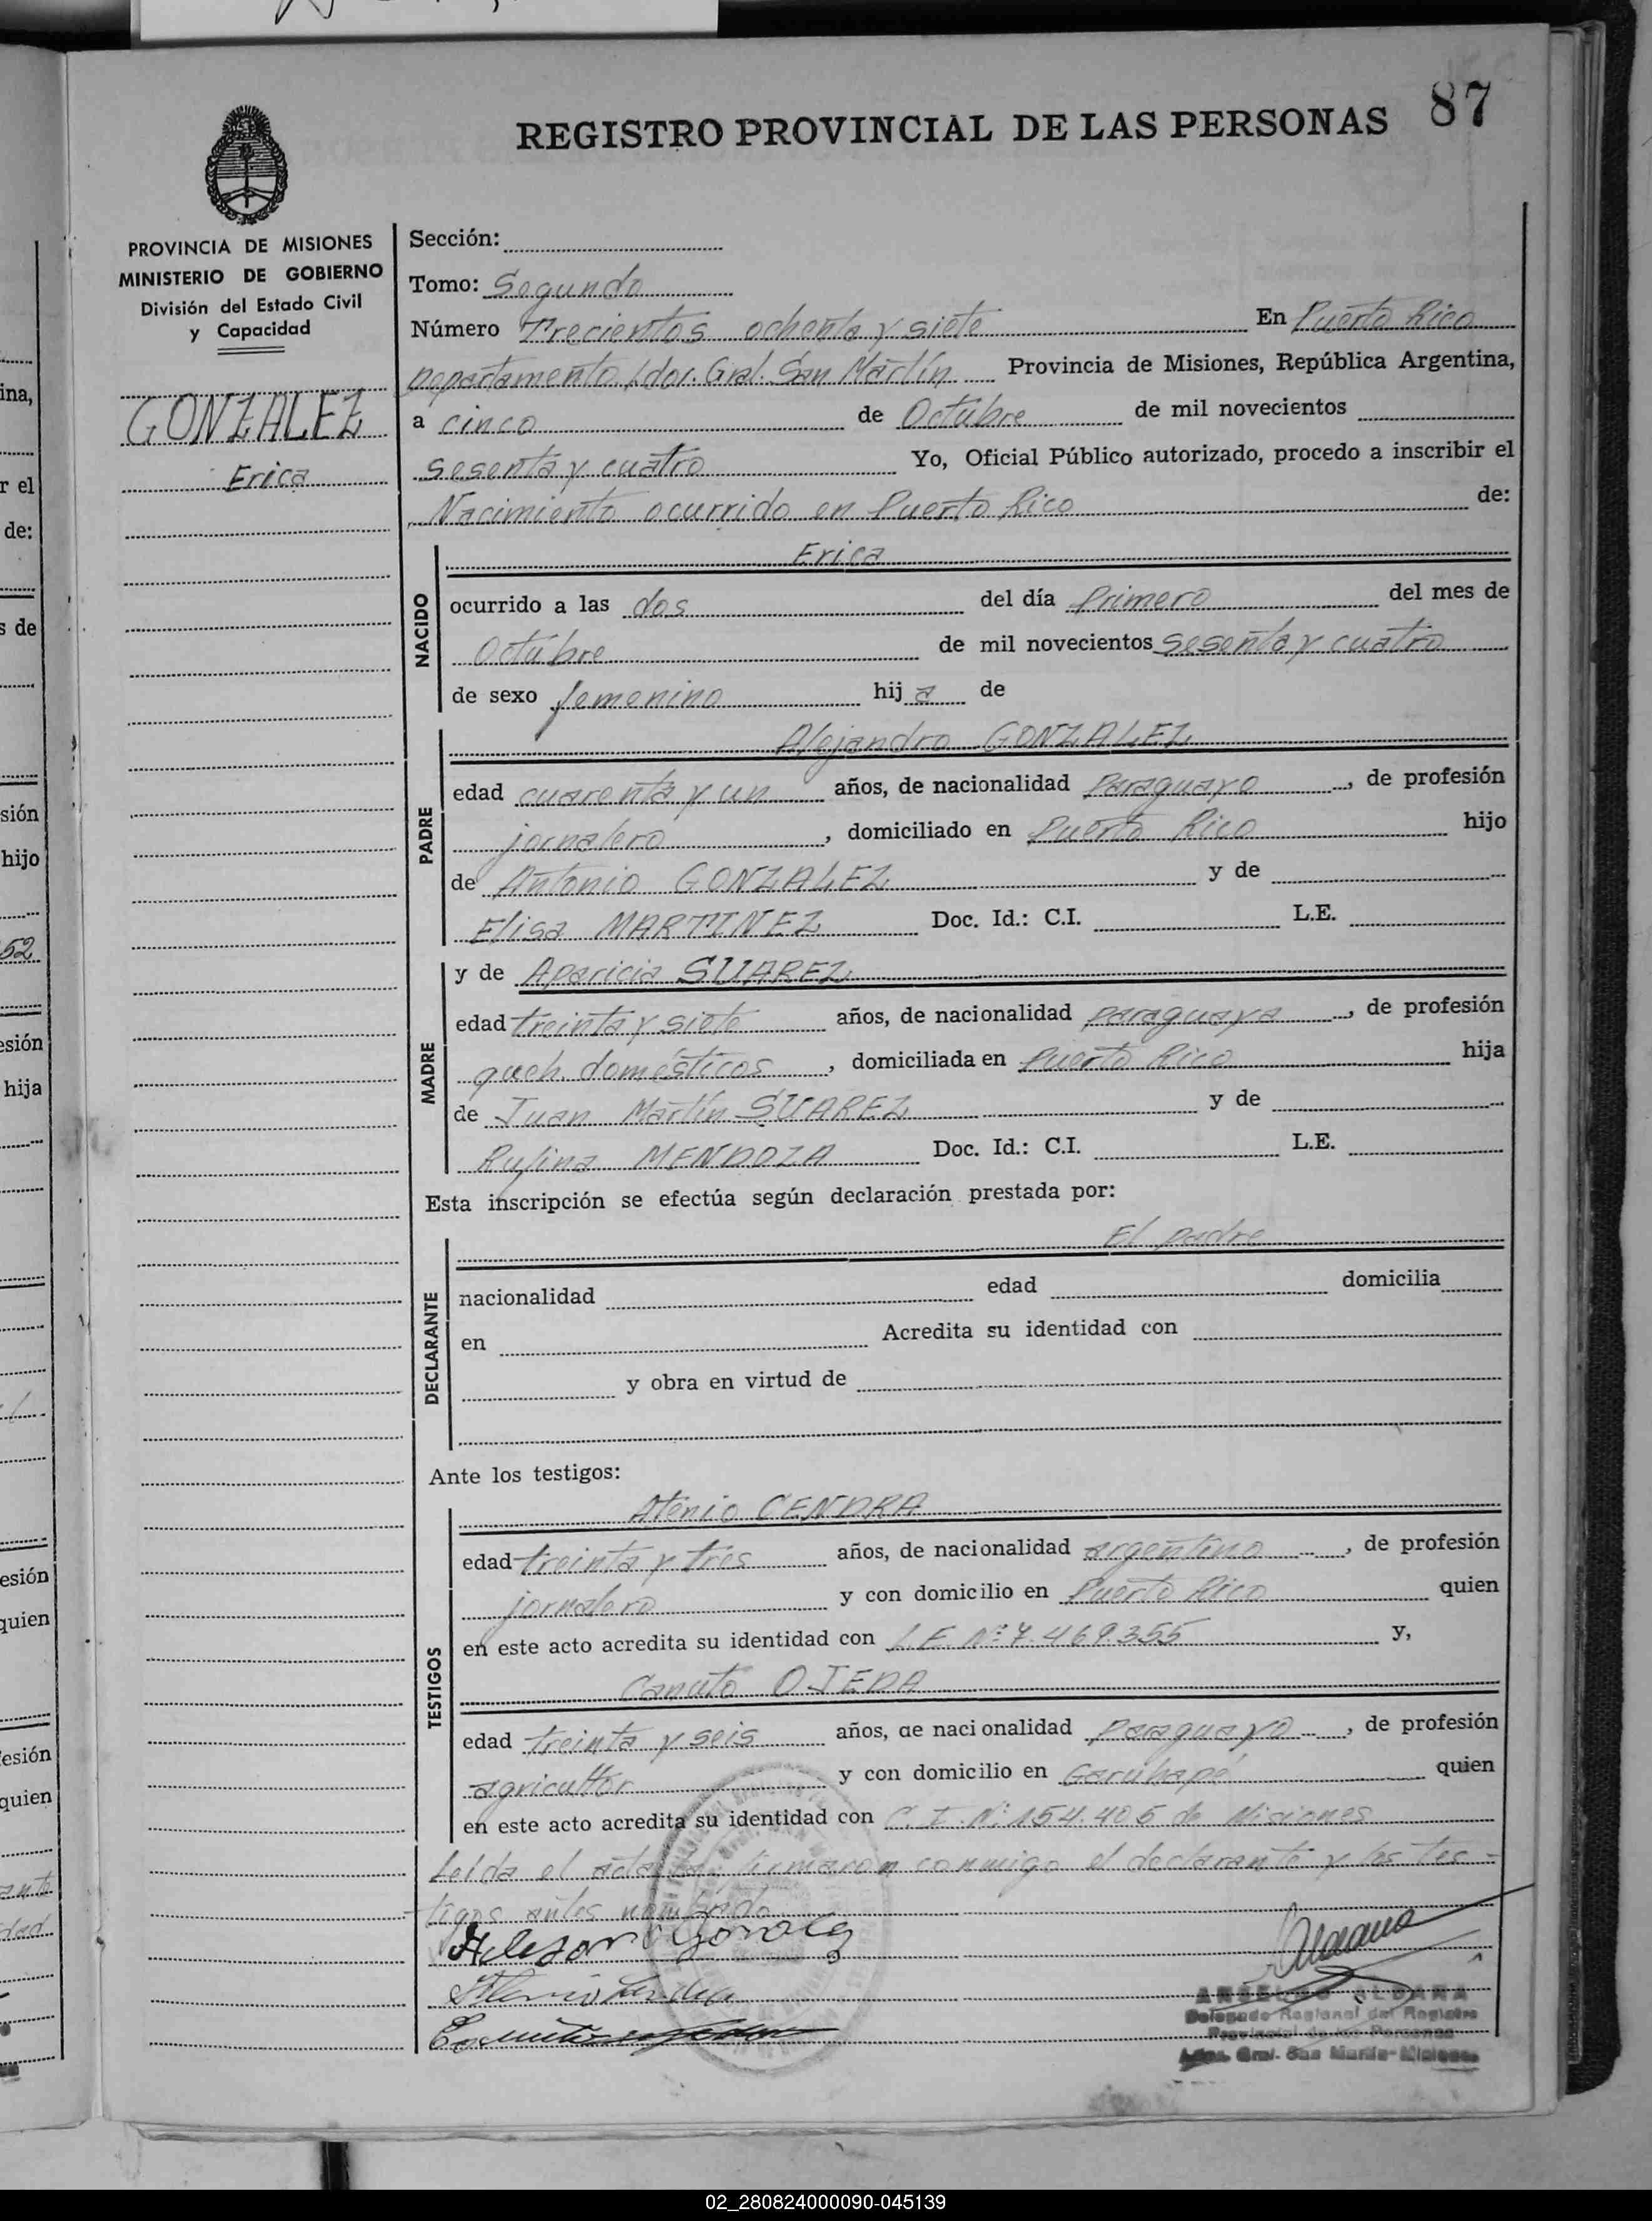 87
REGISTRO PROVINCIAL DE LAS PERSONAS
PROVINCIA DE MISIONES
MINISTERIO DE GOBIERNO
División del Estado Civil
y Capacidad
GONZALEZ
Erica
Sección:
Tomo: Segundo
Número Trecientos ochenta y siete En Puerto Rico
Departamento Ldor. Gral. San Martín Provincia de Misiones, República Argentina,
a cinco de Octubre de mil novecientos
sesenta y cuatro Yo, Oficial Público autorizado, procedo a inscribir el
Nacimiento ocurrido en Puerto Rico de:
NACIDO
Erica
ocurrido a las dos del día Primero del mes de
Octubre de mil novecientos sesenta y cuatro
de sexo femenino hij a de
PADRE
Alejandro GONZALEZ
edad cuarenta y un años, de nacionalidad Paraguayo, de profesión
jornalero, domiciliado en Puerto Rico hijo
de Antonio GONZALEZ y de
Elisa MARTINEZ Doc. Id.: C.I. L.E.
MADRE
y de Aparicia SUAREZ
edad treinta y siete años, de nacionalidad paraguaya, de profesión
queh. domésticos, domiciliada en Puerto Rico hija
de Juan Martín SUAREZ y de
Rufina MENDOZA Doc. Id.: C.I. L.E.
Esta inscripción se efectúa según declaración prestada por:
DECLARANTE
El padre
nacionalidad edad domicilia
en Acredita su identidad con
y obra en virtud de
Ante los testigos:
TESTIGOS
Atenio CENDRA
edad treinta y tres años, de nacionalidad argentino, de profesión
jornalero y con domicilio en Puerto Rico quien
en este acto acredita su identidad con L.E. Nº 7.469.355 y,
Canuto OJEDA
edad treinta y seis años, de nacionalidad Paraguayo, de profesión
agricultor y con domicilio en Garuhapé quien
en este acto acredita su identidad con C.I. Nº 154.405 de Misiones
Leída el acta firmaron conmigo el declarante y los tes-
tigos antes
ALDANA
Delegado Regional del Registro
Provincial de las Personas
Gral. San Martín-Misiones
02_280824000090-045139